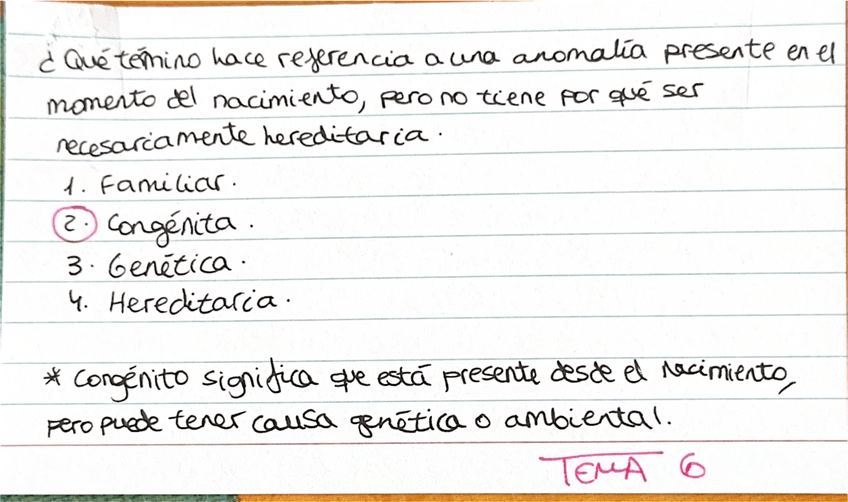 ¿Qué témino hace referencia a una anomalía presente en el
momento del nacimiento, pero no tiene por qué ser
necesariamente hereditaria.
1. Familiar.
2. Congénita.
3. Genética.
4. Hereditaria.
* Congénito significa que está presente desde el nacimiento,
pero puede tener causa genética o ambiental.
TEMA 6